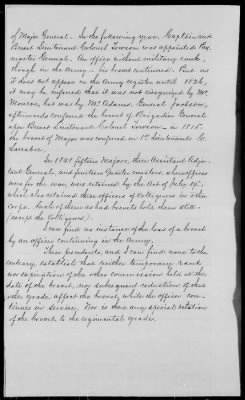 of Major General. In the following year, Captain and
Brevet Lieutenant Colonel Towson was appointed Pay-
master General. An office without military rank,
though in the Army - his brevet continued. But as
it does not appear in the Army register until 1826,
it may be inferred that it was not recognized by Mr.
Monroe, but was by Mr. Adams. General Jackson,
afterwards conferred the brevet of Brigadier General
upon Brevet Lieutenant Colonel Towson - in 1815.
the brevet of Major was conferred on 1st Lieutenant C.
Larrabee.
In 1848 fifteen Majors, then Assistant Adju-
tant Generals, and fourteen Quarter masters, whose offices
were for the war, were retained by the Act of July 19th,
which also retained three officers of Voltigeurs in other
Corps. Each of them who had brevets hold them still.
(except the Voltigeurs).
I can find no instance of the loss of a brevet
by an officer continuing in the Army.
These precedents, and I can find none to the
contrary, establish that neither temporary rank
nor expiration of the other commission held at the
date of the brevet, nor subsequent reduction of that
other grade, affect the brevet, while the officer con-
tinues in service. Nor is there any special relation
of the brevet to the regimental grades.